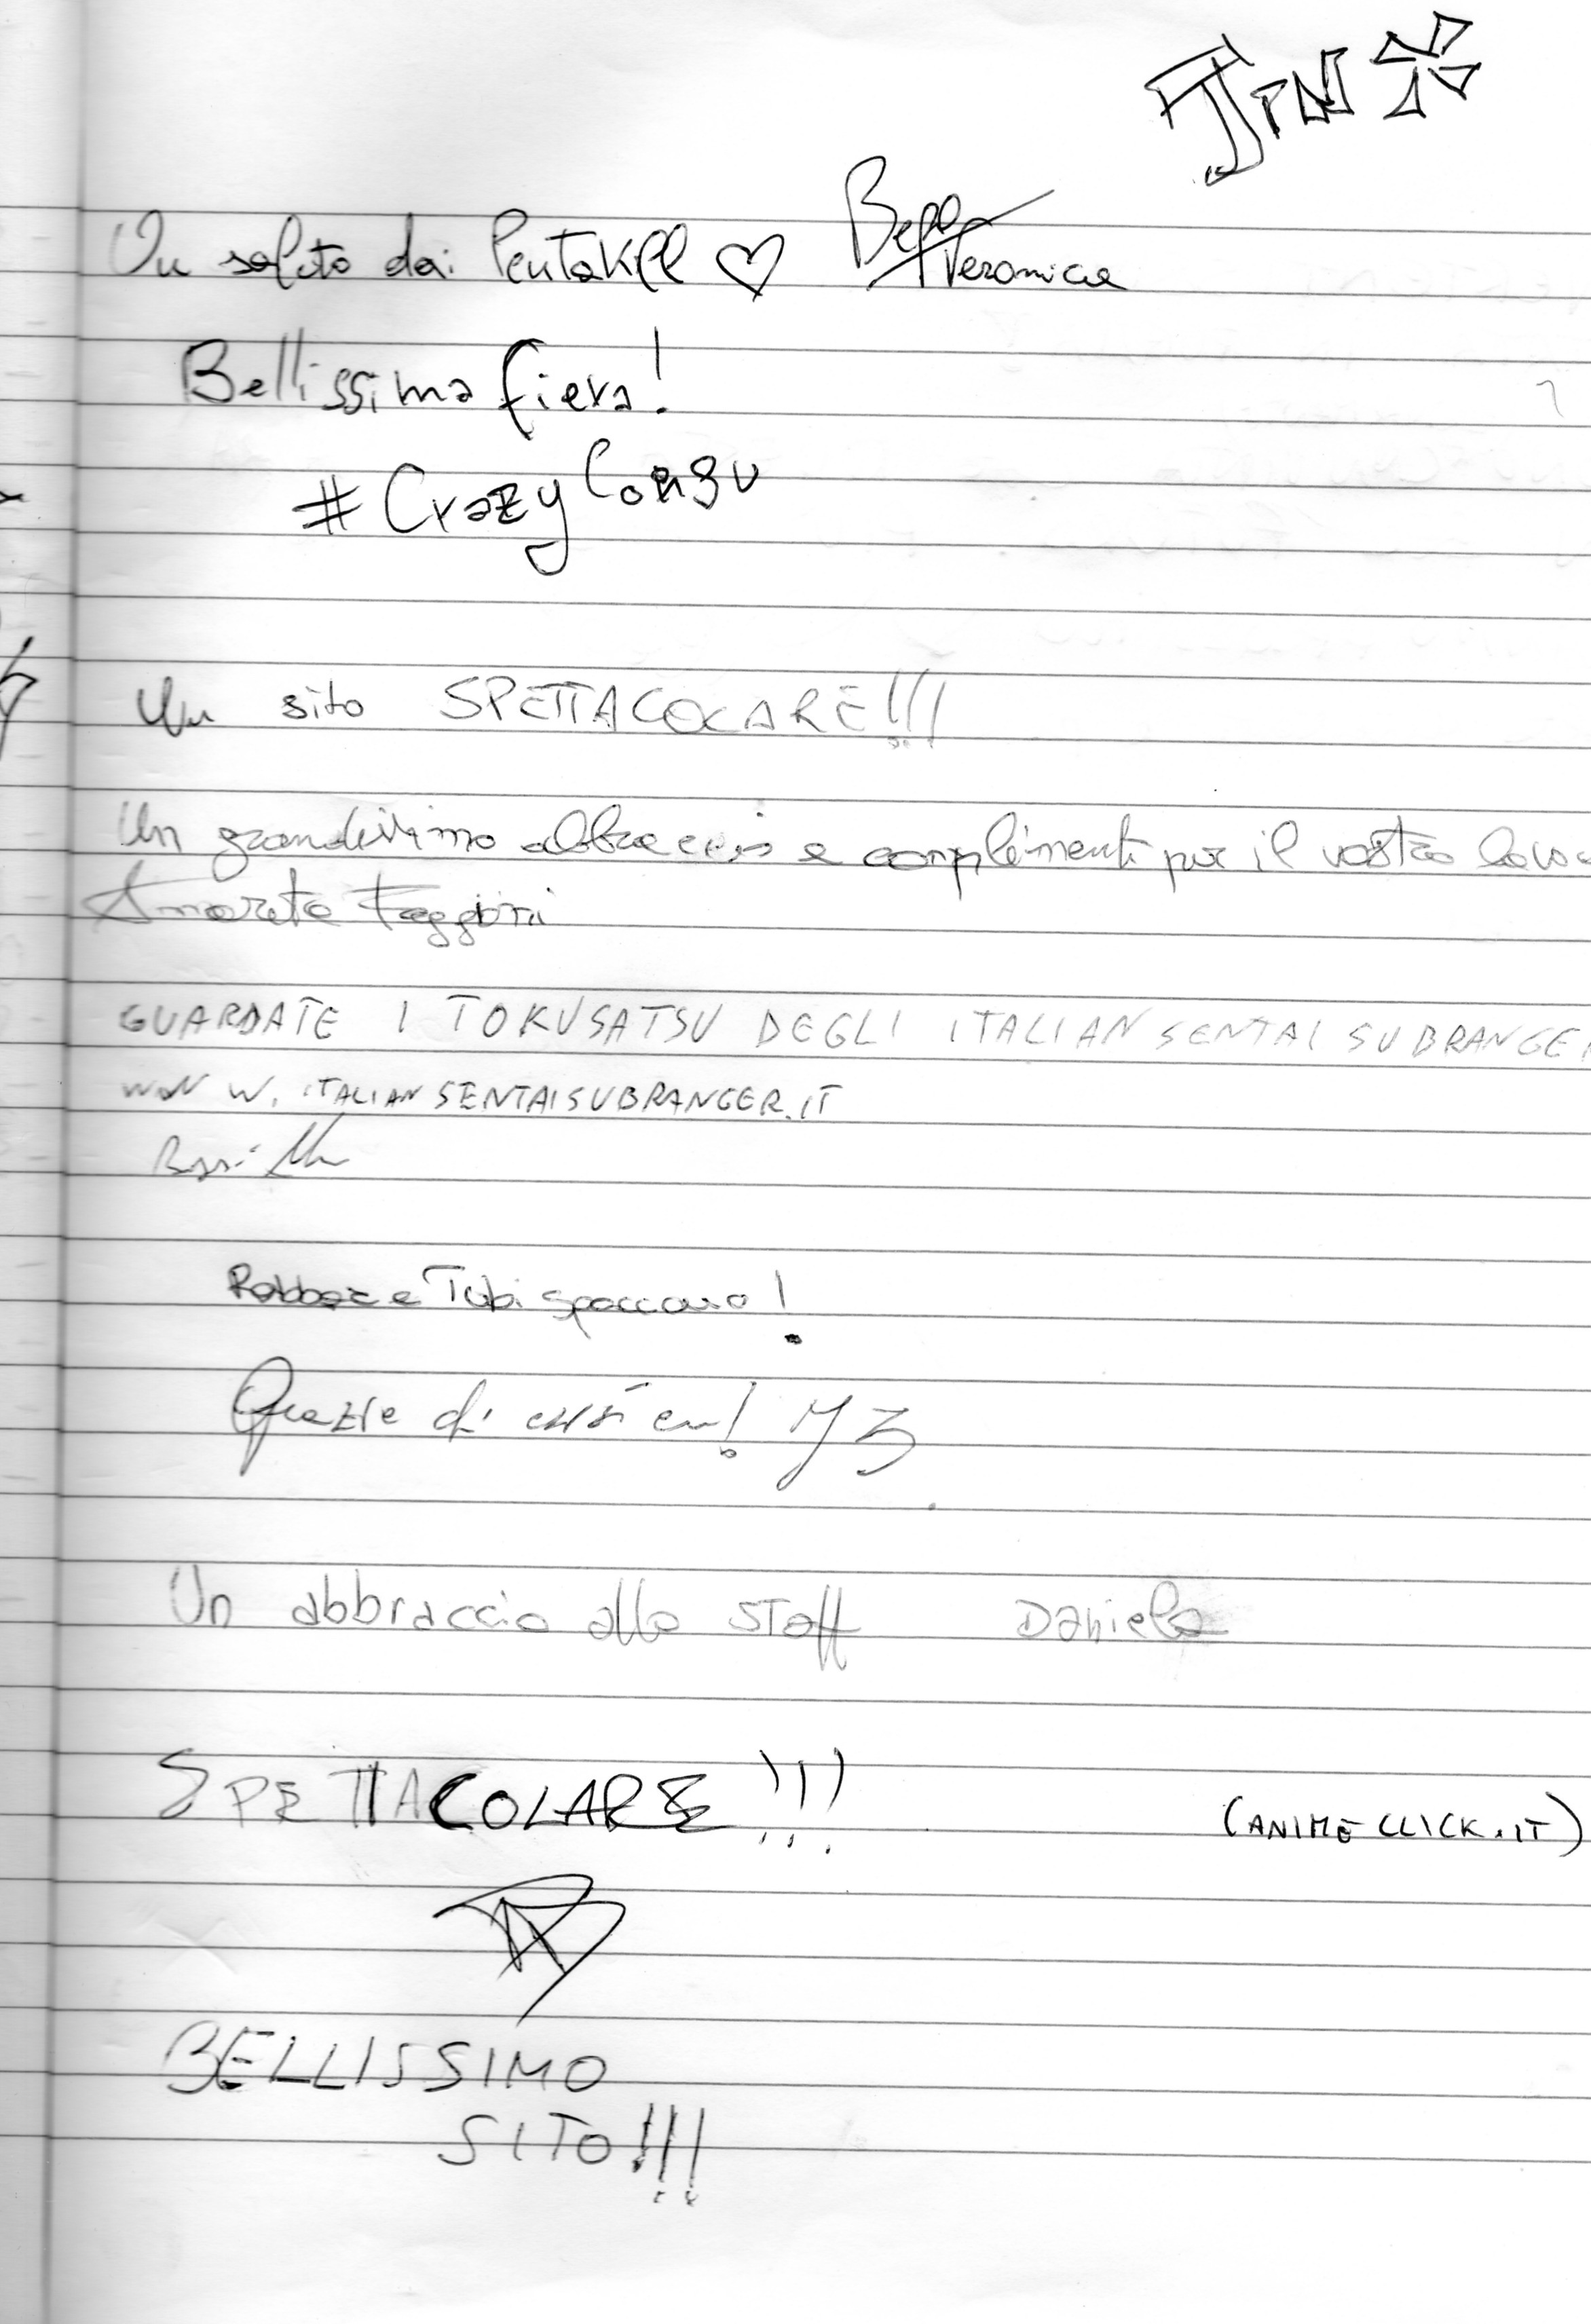 Un saluto dai Pentakill ♡ Veronica
Bellissima fiera!
#CrazyConsu
Un sito SPETTACOLARE!!!
Un grandissimo abbraccio e complimenti per il vostro
GUARDATE I TOKUSATSU DEGLI ITALIAN SENTAI SUBRANGER
WWW. ITALIANSENTAISUBRANGER.IT
e Tubi spaccano!
Grazie di esserci!
Un abbraccio allo staff Daniela
SPETTACOLARE!!!
(ANIMECLICK.IT)
BELLISSIMO
SITO!!!